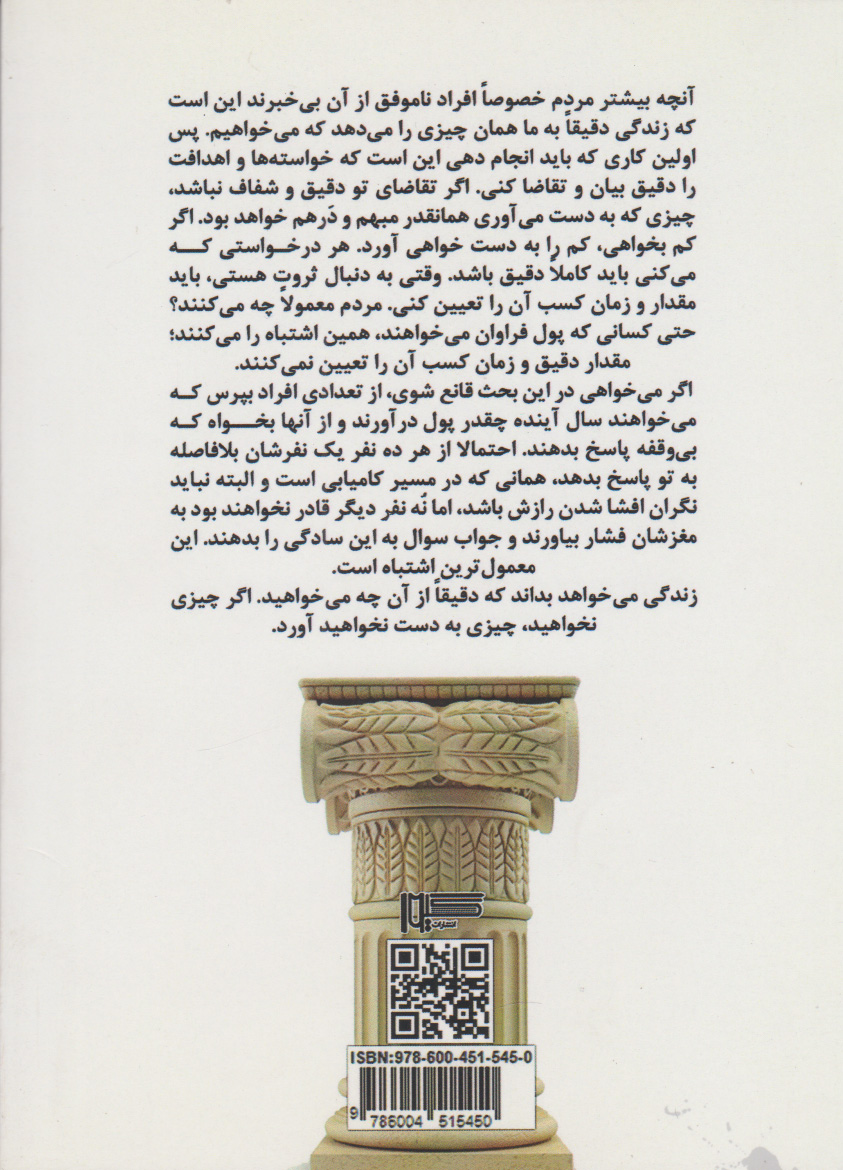 آنچه بیشتر مردم خصوصاً افراد ناموفق از آن بی‌خبرند این است
که زندگی دقیقاً به ما همان چیزی را می‌دهد که می‌خواهیم. پس
اولین کاری که باید انجام دهی این است که خواسته‌ها و اهدافت
را دقیق بیان و تقاضا کنی. اگر تقاضای تو دقیق و شفاف نباشد،
چیزی که به دست می‌آوری همانقدر مبهم و دَرهم خواهد بود. اگر
کم بخواهی، کم را به دست خواهی آورد. هر درخـواستی کـه
می‌کنی باید کاملاً دقیق باشد. وقتی به دنبال ثروت هستی، باید
مقدار و زمان کسب آن را تعیین کنی. مردم معمولاً چه می‌کنند؟
حتی کسانی که پول فراوان می‌خواهند، همین اشتباه را می‌کنند؛
مقدار دقیق و زمان کسب آن را تعیین نمی‌کنند.
اگر می‌خواهی در این بحث قانع شوی، از تعدادی افراد بپرس کـه
می‌خواهند سال آینده چقدر پول درآورند و از آنها بخـــواه کـه
بی‌وقفه پاسخ بدهند. احتمالا از هر ده نفر یک نفرشان بلافاصله
به تو پاسخ بدهد، همانی که در مسیر کامیابی است و البته نباید
نگران افشا شدن رازش باشد، اما نُه نفر دیگر قادر نخواهند بود به
مغزشان فشار بیاورند و جواب سوال به این سادگی را بدهند. این
معمول‌ترین اشتباه است.
زندگی می‌خواهد بداند که دقیقاً از آن چه می‌خواهید. اگر چیزی
نخواهید، چیزی به دست نخواهید آورد.
انتشارات
ISBN:978-600-451-545-0
9 786004 515450